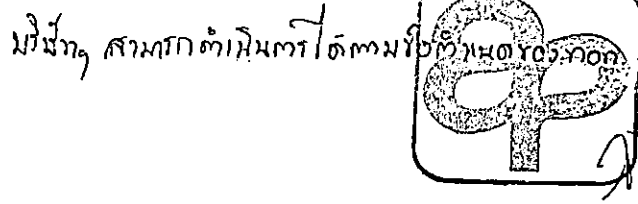 บริษัทฯ สามารถดำเนินการได้ตามข้อกำหนดของ ทอท